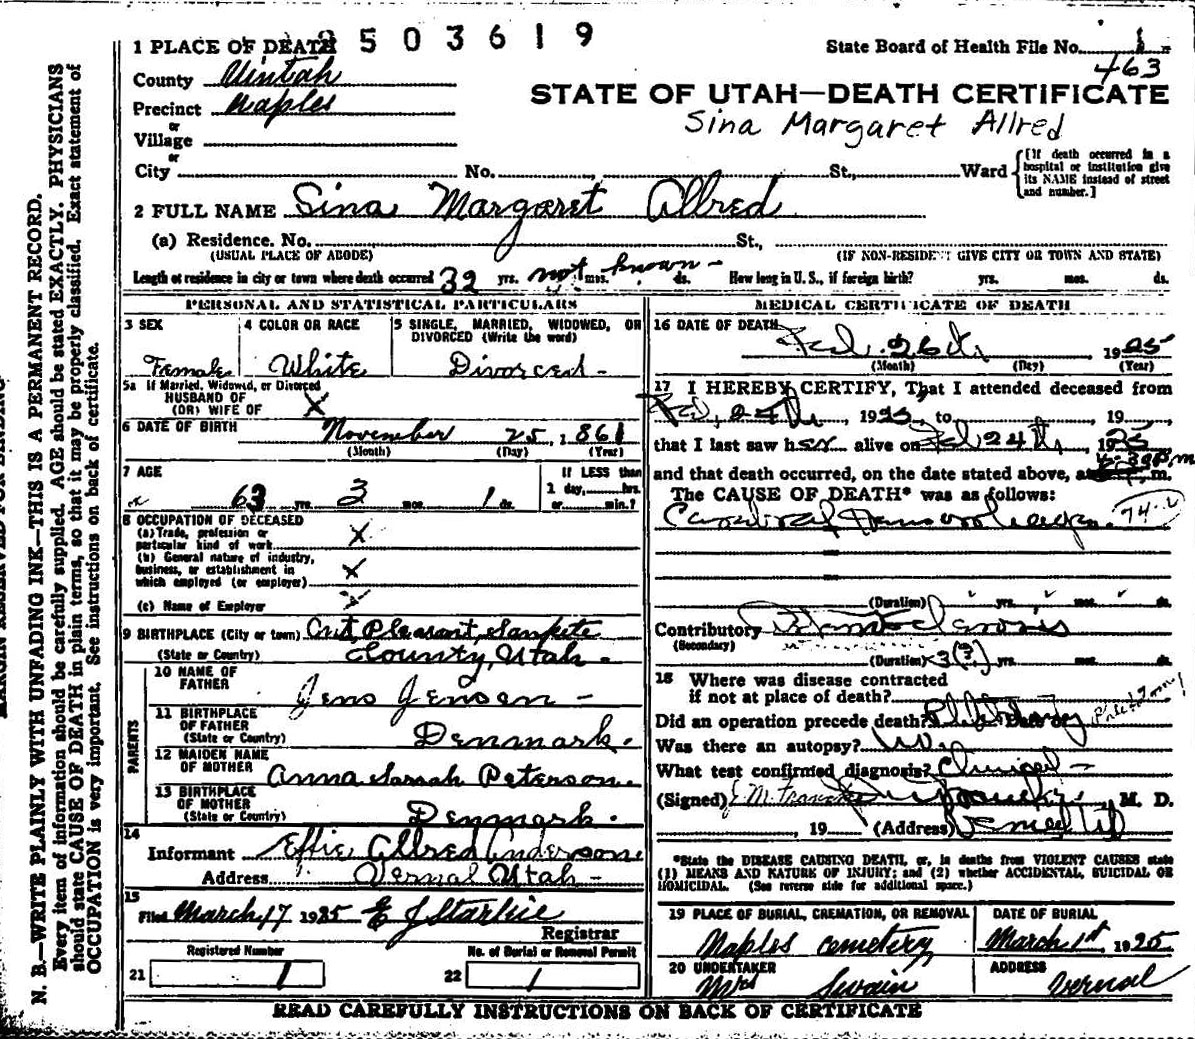 2503619
1 PLACE OF DEATH
State Board of Health File No. 1
463
County Uintah
Precinct Naples
or
Village
or
City No. St., Ward
STATE OF UTAH—DEATH CERTIFICATE
Sina Margaret Allred
[If death occurred in a hospital or institution give its NAME instead of street and number.]
2 FULL NAME Sina Margaret Allred
(a) Residence. No. St.,
(USUAL PLACE OF ABODE) (IF NON-RESIDENT GIVE CITY OR TOWN AND STATE)
Length of residence in city or town where death occurred 32 yrs. not known mos. ds. How long in U. S., if foreign birth? yrs. mos. ds.
PERSONAL AND STATISTICAL PARTICULARS
3 SEX
Female
4 COLOR OR RACE
White
5 SINGLE, MARRIED, WIDOWED, OR
DIVORCED (Write the word)
Divorced -
5a If Married, Widowed, or Divorced
HUSBAND OF
(OR) WIFE OF X
6 DATE OF BIRTH November 25, 1861
(Month) (Day) (Year)
7 AGE
63 yrs. 3 mos. 1 ds.
If LESS than
1 day, hrs.
or min.?
8 OCCUPATION OF DECEASED
(a) Trade, profession or
particular kind of work X
(b) General nature of industry,
business, or establishment in
which employed (or employer) X
(c) Name of Employer
9 BIRTHPLACE (City or town) Mt. Pleasant, Sanpete
(State or Country) County, Utah -
PARENTS
10 NAME OF
FATHER Jens Jensen -
11 BIRTHPLACE
OF FATHER
(State or Country) Denmark.
12 MAIDEN NAME
OF MOTHER Anna Sarah Peterson
13 BIRTHPLACE
OF MOTHER
(State or Country) Denmark.
14
Informant Effie Allred Anderson
Address Vernal Utah -
15
Filed March 17 1925 E J Starkie
Registrar
Registered Number
21 1
No. of Burial or Removal Permit
22 1
MEDICAL CERTIFICATE OF DEATH
16 DATE OF DEATH
Feb. 26th 1925
(Month) (Day) (Year)
17 I HEREBY CERTIFY, That I attended deceased from
Feb, 24th, 1925, to , 19
that I last saw her alive on Feb 24th, 1925
and that death occurred, on the date stated above, at m.
The CAUSE OF DEATH* was as follows:
Cerebral Hemorrhage
(Duration) yrs. mos. ds.
Contributory
(Secondary)
(Duration) 3(?) yrs. mos. ds.
18 Where was disease contracted
if not at place of death?
Did an operation precede death?
Was there an autopsy? No.
What test confirmed diagnosis? Clinical -
(Signed) , M. D.
, 19 (Address)
*State the DISEASE CAUSING DEATH, or, in deaths from VIOLENT CAUSES state
(1) MEANS AND NATURE OF INJURY; and (2) whether ACCIDENTAL, SUICIDAL OR
HOMICIDAL. (See reverse side for additional space.)
19 PLACE OF BURIAL, CREMATION, OR REMOVAL
Naples cemetery
DATE OF BURIAL
March 1st, 1925
20 UNDERTAKER
Mrs Swain
ADDRESS
Vernal
READ CAREFULLY INSTRUCTIONS ON BACK OF CERTIFICATE
N. B.—WRITE PLAINLY WITH UNFADING INK—THIS IS A PERMANENT RECORD.
Every item of information should be carefully supplied. AGE should be stated EXACTLY. PHYSICIANS
should state CAUSE OF DEATH in plain terms, so that it may be properly classified. Exact statement of
OCCUPATION is very important. See instructions on back of certificate.